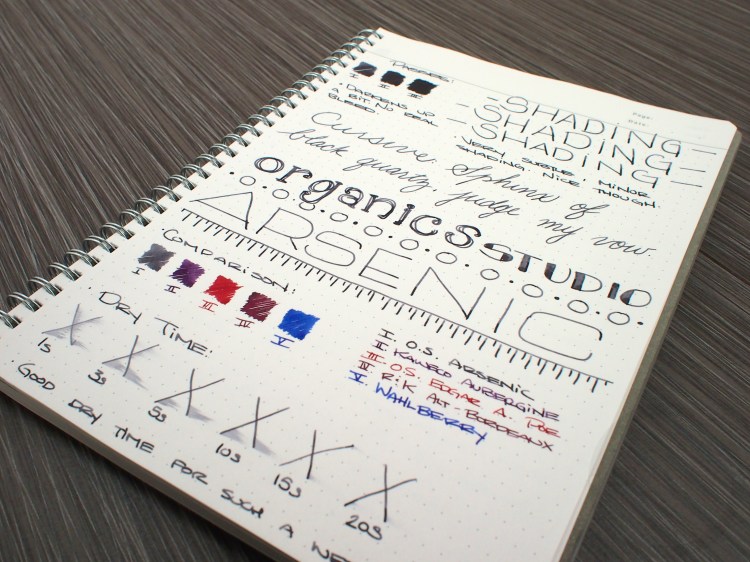 PASSES:
I II III
· DARKENS UP
A BIT. NO REAL
BLEED.
Page:
Date:
-SHADING-
-SHADING-
-SHADING-
· VERY SUBTLE, MINOR
SHADING. NICE THOUGH.
Cursive: Sphinx of
black quartz, judge my vow.
organics STUDIO
ARSENIC
COMPARISON:
I II III IV V
I. O.S. ARSENIC
II. KAWECO AUBERGINE
III. OS. EDGAR A. POE
IV. R&K ALT-BORDEAUX
V. WAHLBERRY
· DRY TIME:
X X X X X X
1s 3s 5s 10s 15s 20s
· GOOD DRY TIME FOR SUCH A